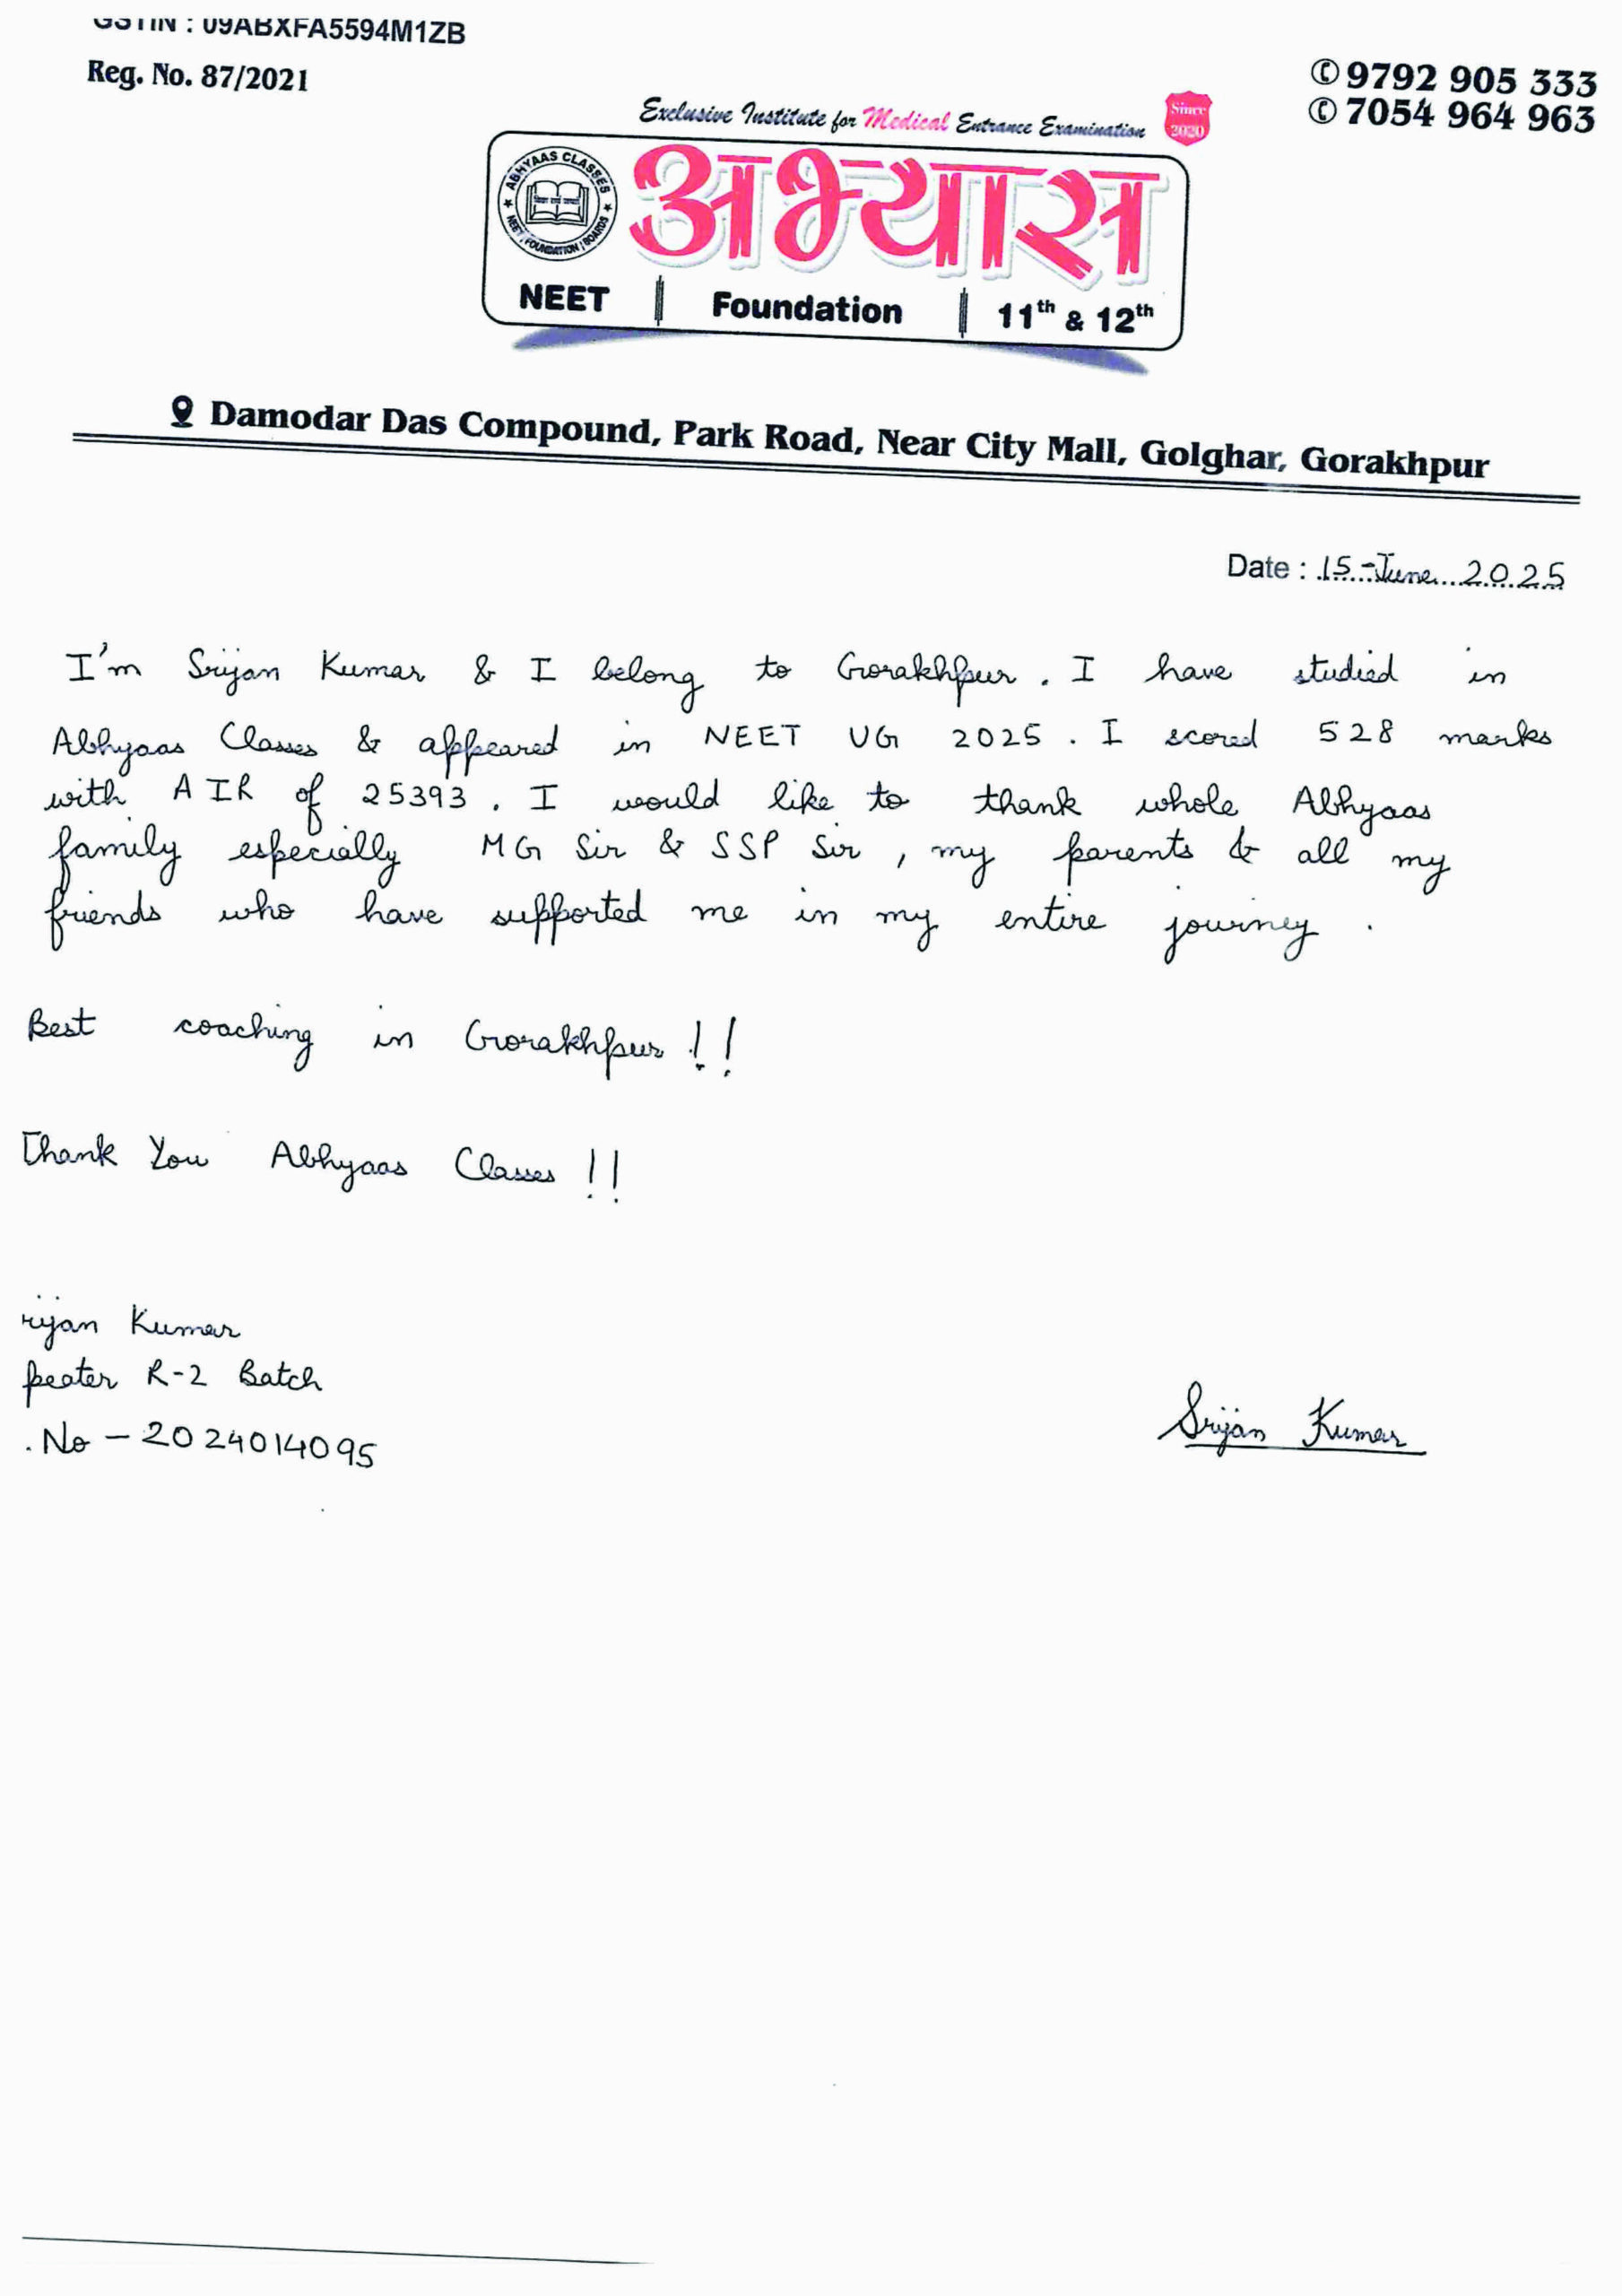 GSTIN : 09ABXFA5594M1ZB
Reg. No. 87/2021
✆ 9792 905 333
✆ 7054 964 963
Exclusive Institute for Medical Entrance Examination
Since 2020
ABHYAAS CLASSES
NEET | FOUNDATION | BOARDS
अभ्यास
NEET | Foundation | 11th & 12th
Damodar Das Compound, Park Road, Near City Mall, Golghar, Gorakhpur
Date : 15-June 2025
I'm Srijan Kumar & I belong to Gorakhpur. I have studied in
Abhyaas Classes & appeared in NEET UG 2025. I scored 528 marks
with AIR of 25393. I would like to thank whole Abhyaas
family especially MG Sir & SSP Sir, my parents & all my
friends who have supported me in my entire journey.
Best coaching in Gorakhpur!!
Thank You Abhyaas Classes!!
rijan Kumar
peater R-2 Batch
. No - 2024014095
Srijan Kumar